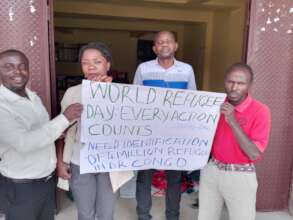 WORLD REFUGEE
DAY-EVERY ACTION
COUNTS
NEED IDENTIFICATION
OF 4 MILLION REFUGEE
IN DR CONGO